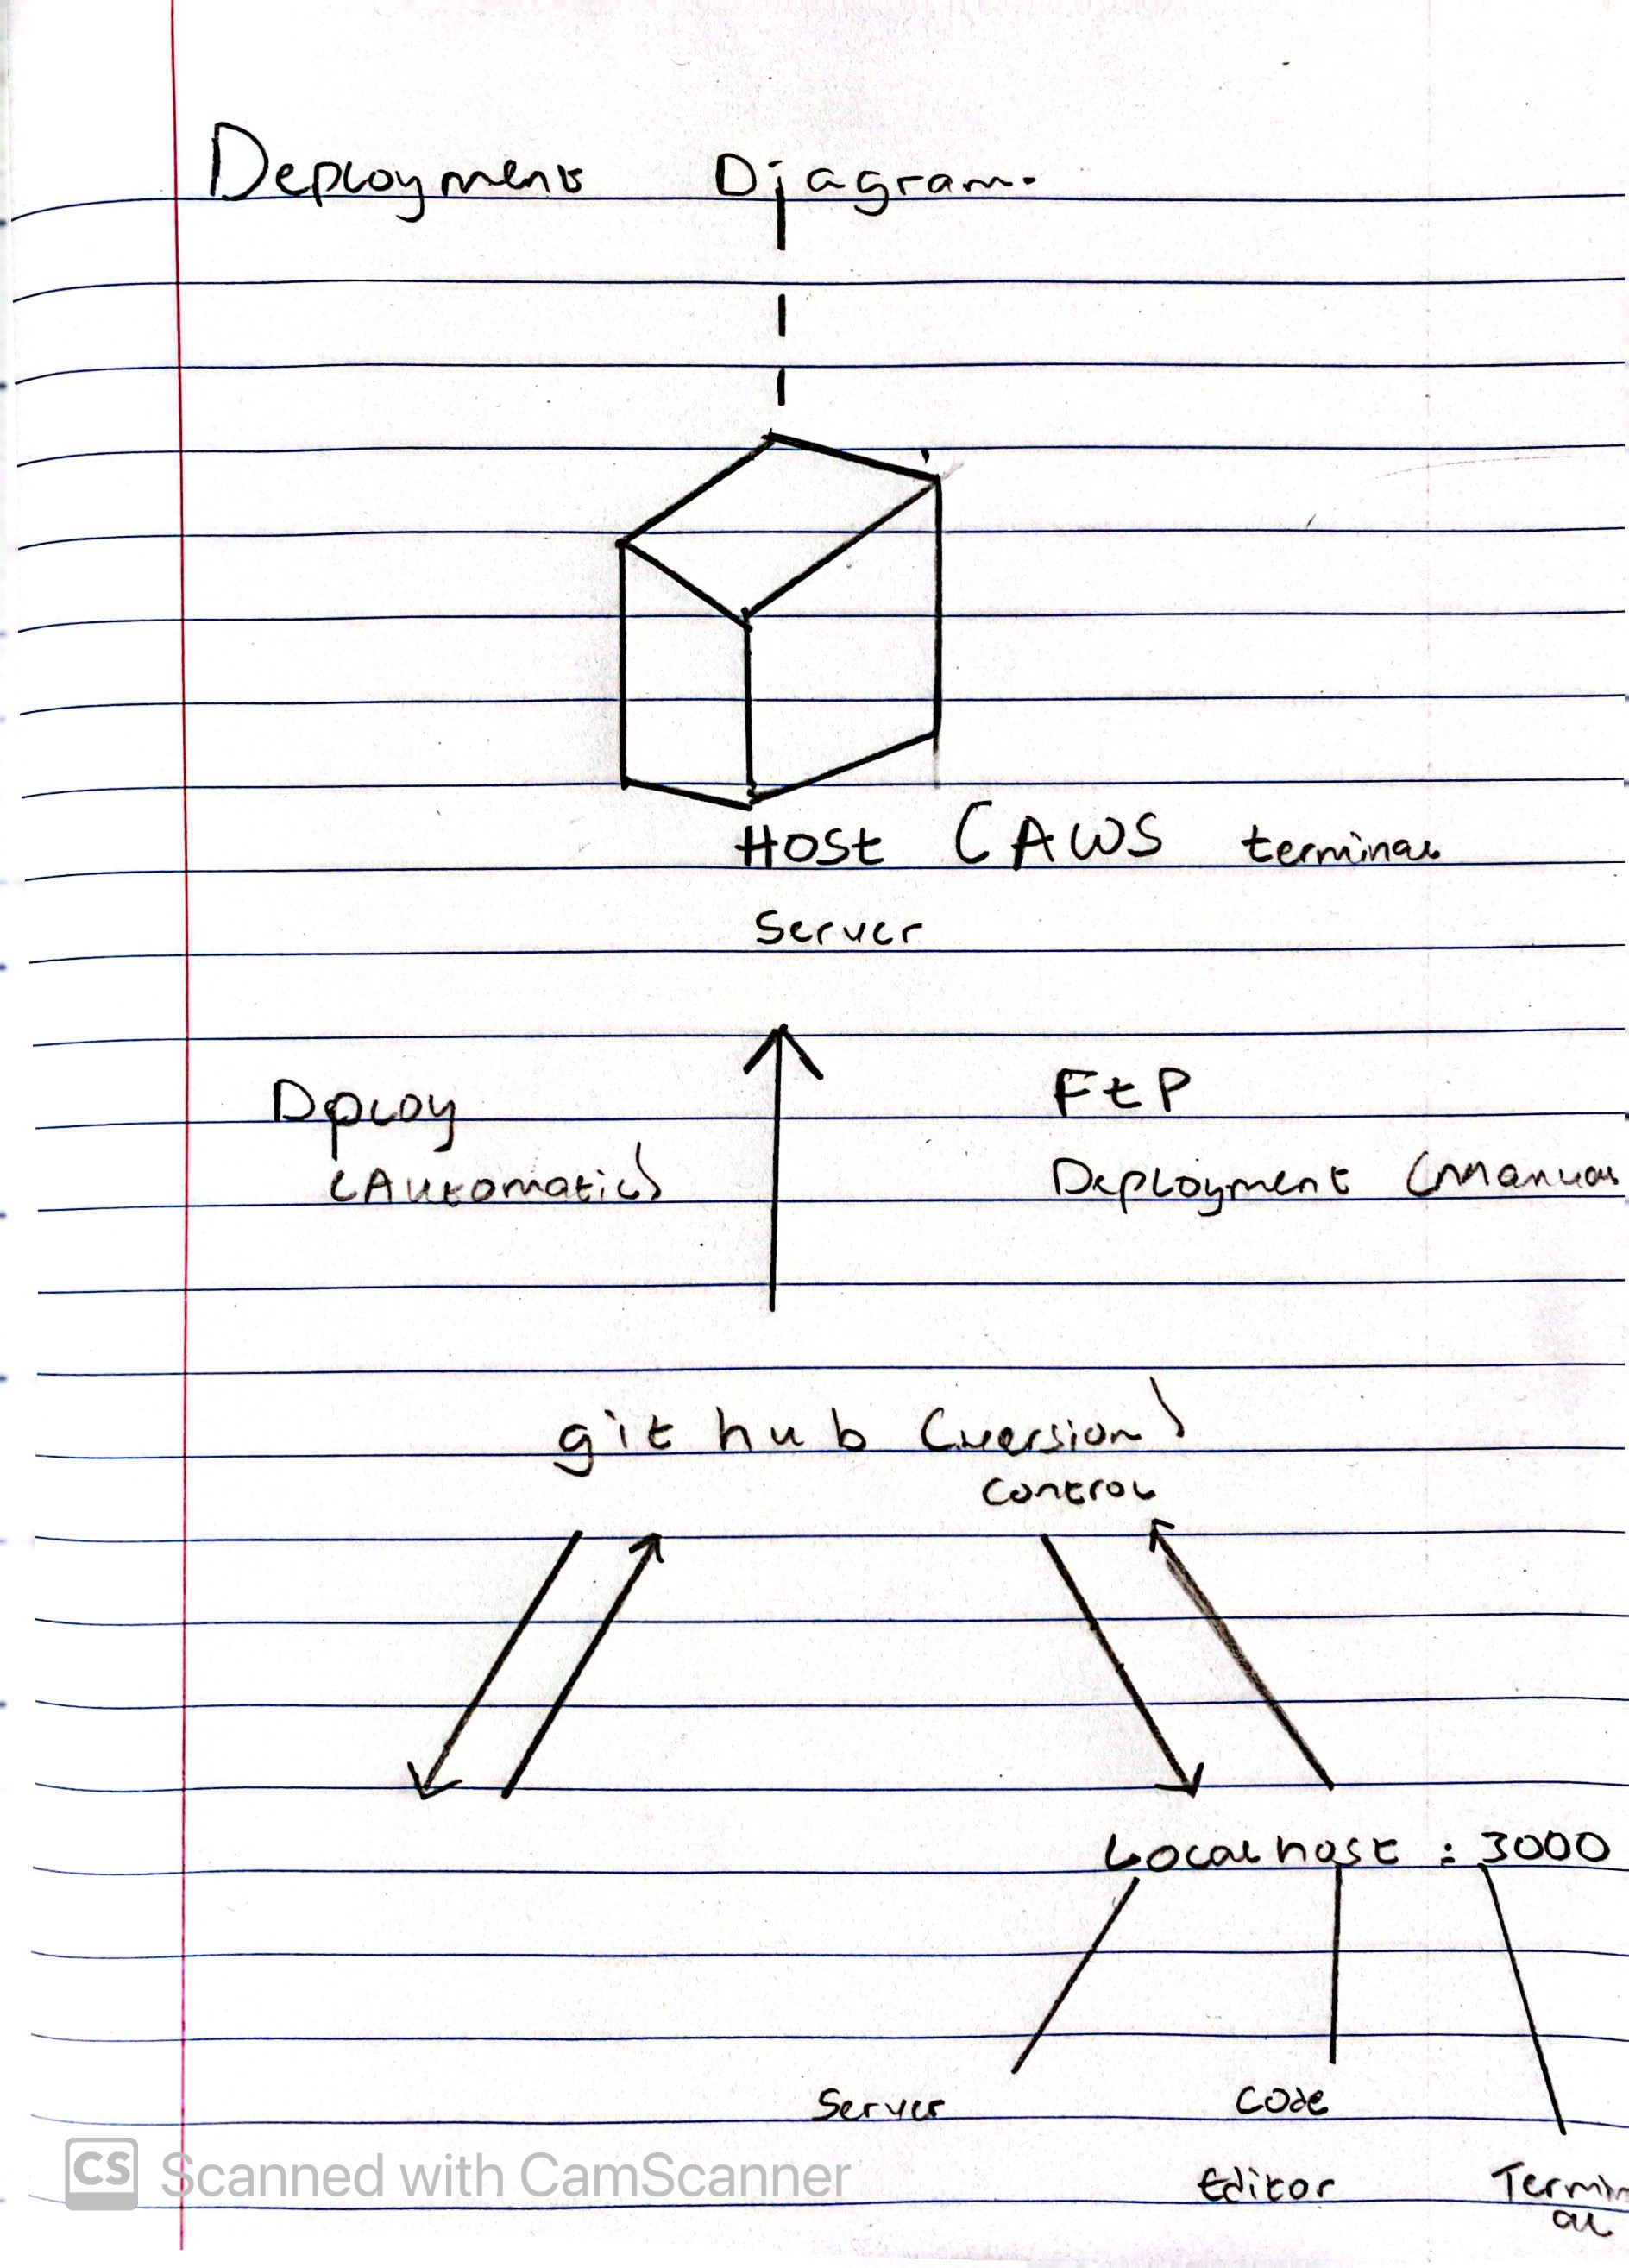 Deployment Diagram.
Host (AWS terminal
Server
Dploy
(Automatic)
FtP
Deployment (Manual
git hub (version)
control
Localhost : 3000
Server
Code
Editor
Termin
al
CS Scanned with CamScanner